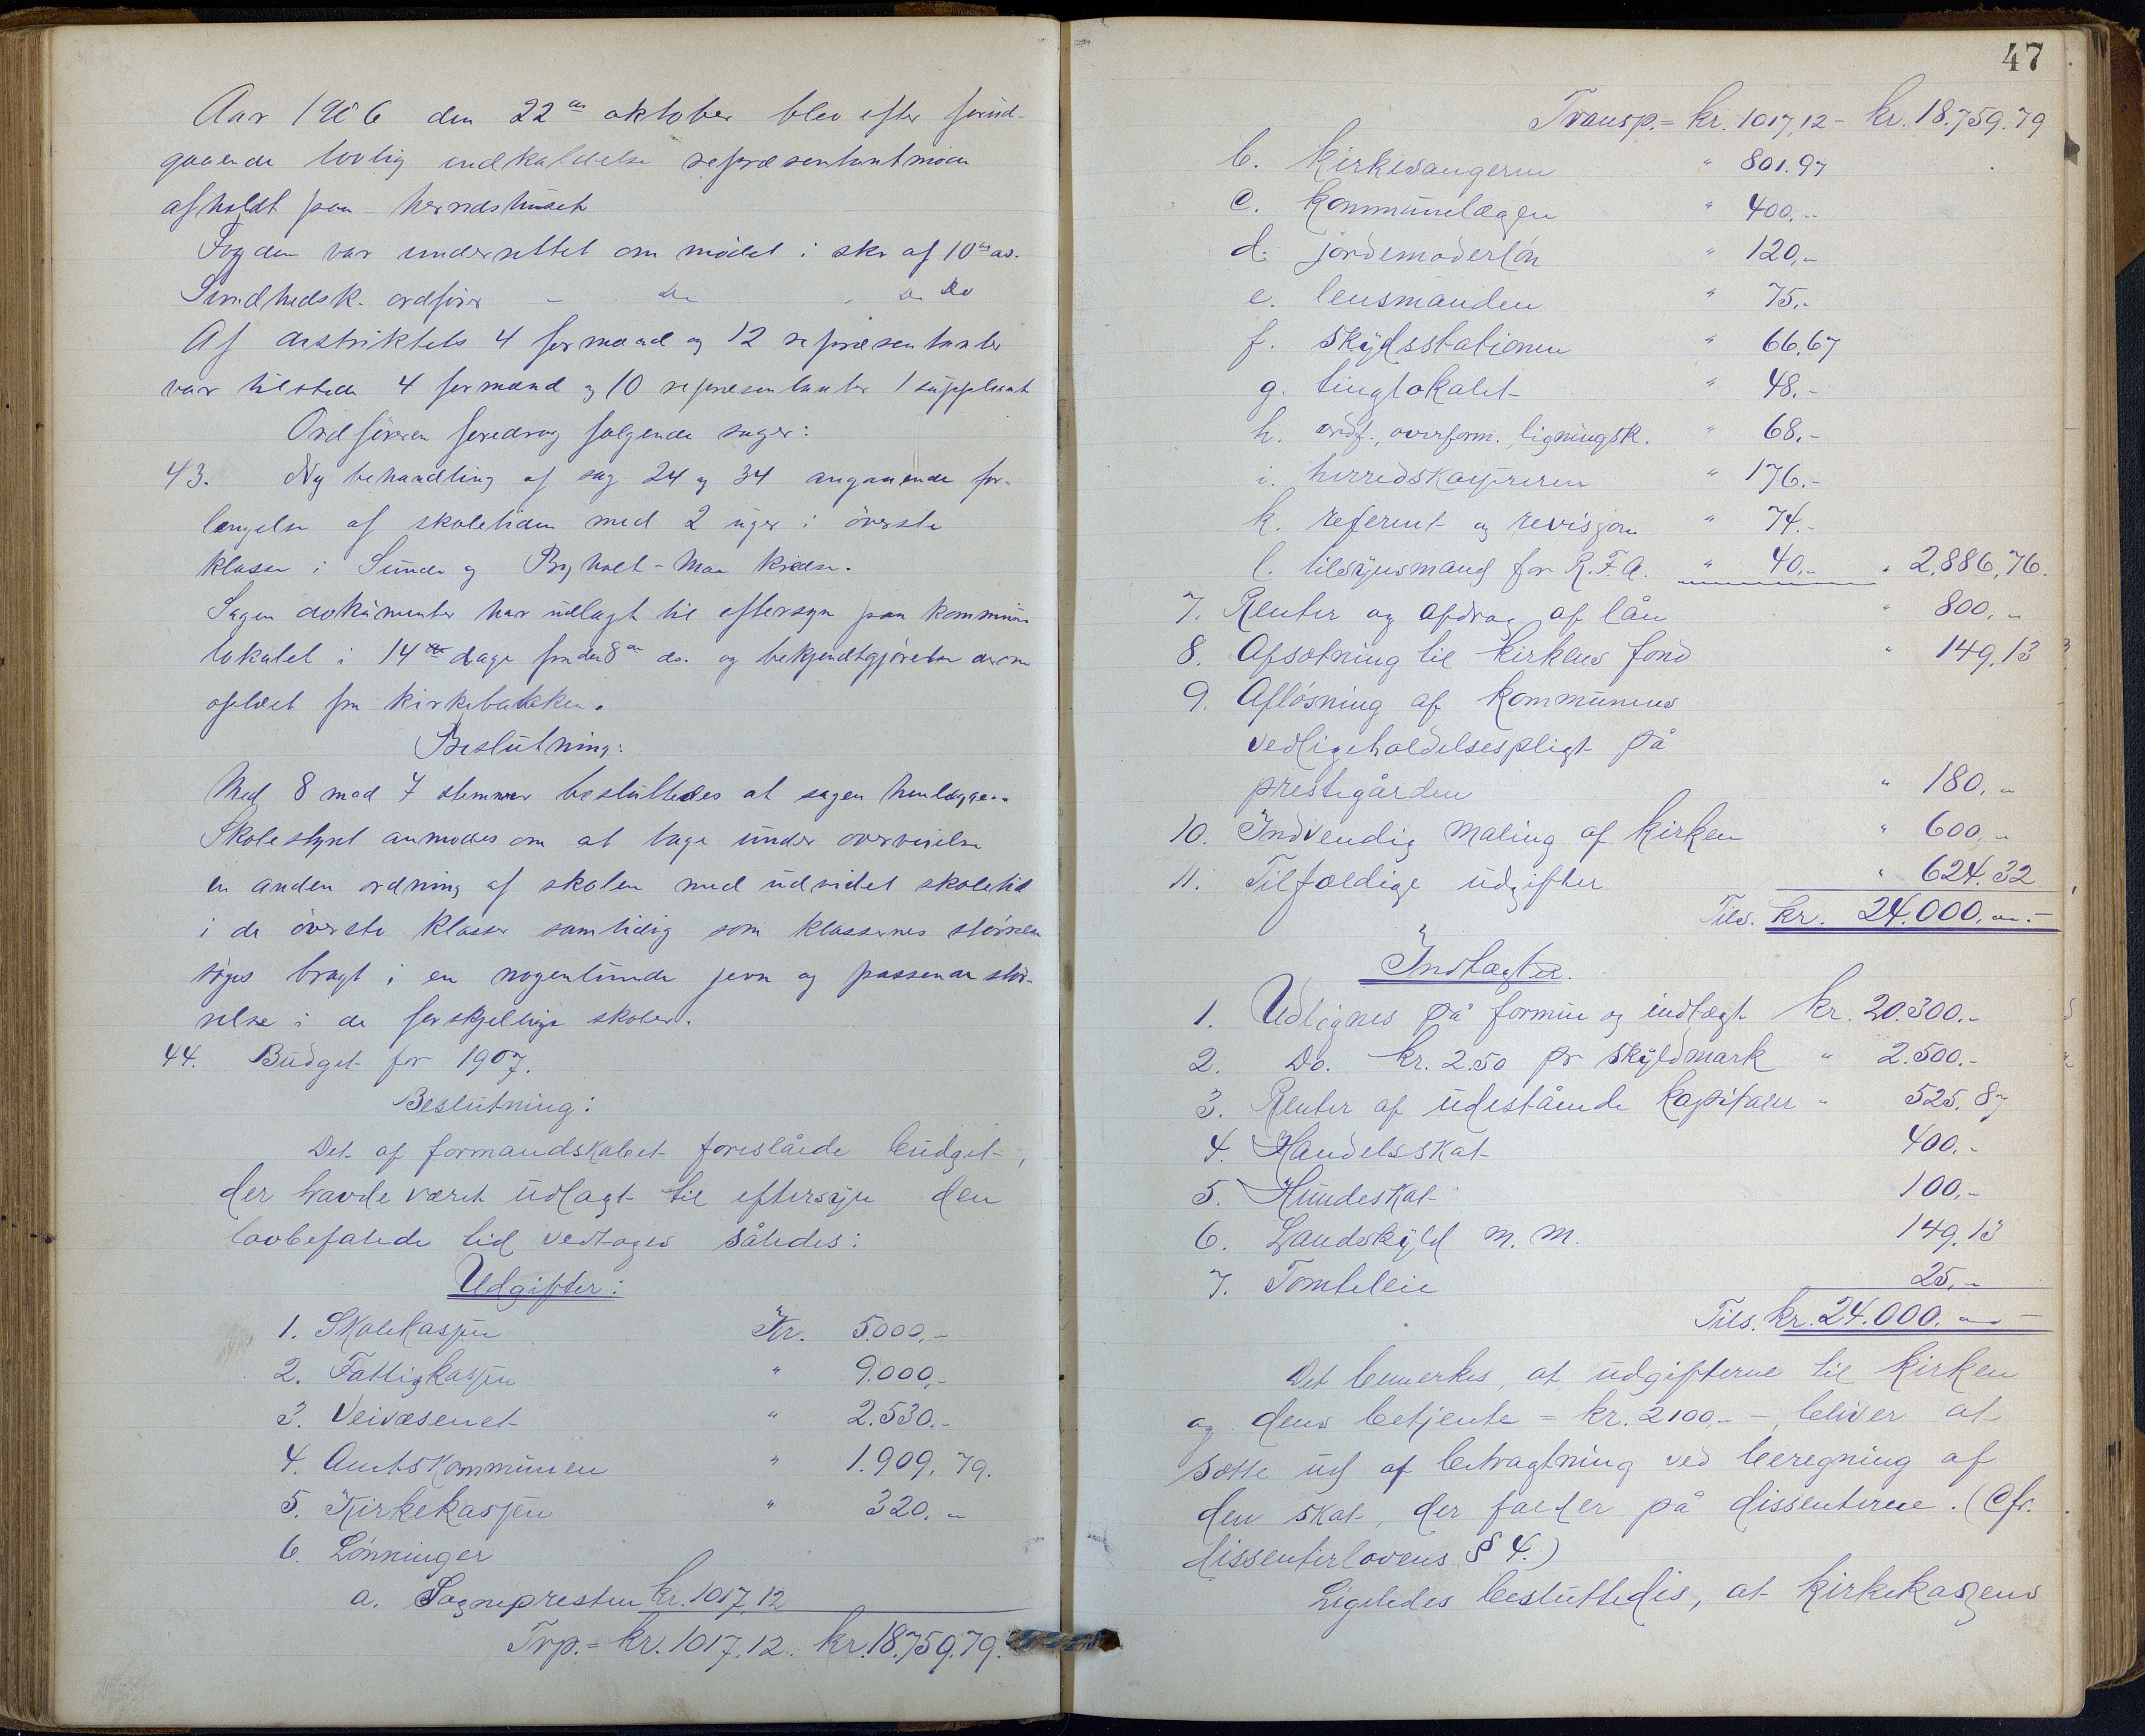 Aar 1906 den 22de oktober blev efter forud-
gaaende lovlig indkaldelse repræsentantmøde
afholdt paa herredshuset
Fogden var underrettet om mødet i skr af 10de ds.
Sundhedsk. ordfører - Do , Do Do
Af distriktets 4 formænd og 12 repræsentanter
var tilstede 4 formænd og 10 repræsentanter 1 suppleant
Ordføreren foredrog følgende sager:
43. Ny behandling af sag 24 og 34 angaaende for-
længelse af skoletiden med 2 uger i øverste
klasse i Sunde og Byholt-Moe kredse.
Sagen dokumenter har udlagt til eftersyn paa kommune
lokalet i 14 dage fra den 8de ds. og bekjendtgjørelse derom
oplæst fra kirkebakken.
Beslutning:
Med 8 mod 7 stemmer besluttedes at sagen henlægges.
Skolestyret anmodes om at tage under overveielse
en anden ordning af skolen med udvidet skoletid
i de øverste klasser samtidig som klassernes størrelse
søges bragt i en nogenlunde jevn og passende stør-
relse i de forskjellige skoler.
44. Budget for 1907.
Beslutning:
Det af formandskabet foreslåede budget,
der havde været udlagt til eftersyn den
lovbefalede tid vedtoges således:
Udgifter:
1. Skolekassen Kr. 5.000,-
2. Fattigkassen " 9.000,-
3. Veivæsenet " 2.530.-
4. Amtskommunen " 1.909,79.
5. Kirkekassen " 320,-
6. Lønninger
a. Sognepresten kr. 1017,12
Trp. = kr. 1017,12. kr. 18.759,79.
47
Transp. = kr. 1017,12 - kr. 18.759.79
b. kirkesangeren " 801.97
c. kommunelægen " 400,-
d. jordemoderløn " 120,-
e. lensmanden " 75,-
f. skydsstationen " 66,67
g. tinglokalet " 48,-
h. ordf., overform., ligningsk. " 68,-
i. herredskasjereren " 176.-
k. referent og revisjon " 74.-
l. tilsynsmand for R.F.A. " 40,- " 2,886,76.
7. Renter og afdrag af lån " 800,-
8. Afsætning til kirkens fond " 149,13
9. Afløsning af kommunens
vedligeholdelsespligt på
prestegården " 180,-
10. Indvendig maling af kirken " 600,-
11. Tilfældige udgifter " 624.32
Tils. kr. 24.000,-
Indtægter.
1. Udlignes på formue og indtægt kr. 20.300.-
2. Do. kr. 2.50 pr skyldmark " 2.500.-
3. Renter af udestående kapitaler " 525,87
4. Handelsskat 400,-
5. Hundeskat 100,-
6. Landskyld m. m. 149.13
7. Tomteleie 25,-
Tils. kr. 24.000,-
Det bemerkes, at udgifterne til kirken
og dens betjente = kr. 2100,- - bliver at
sætte ud af betragtning ved beregning af
den skat, der falder på dissenterne. (Cfr.
dissenterlovens § 4.)
Ligeledes besluttedes, at kirkekassens